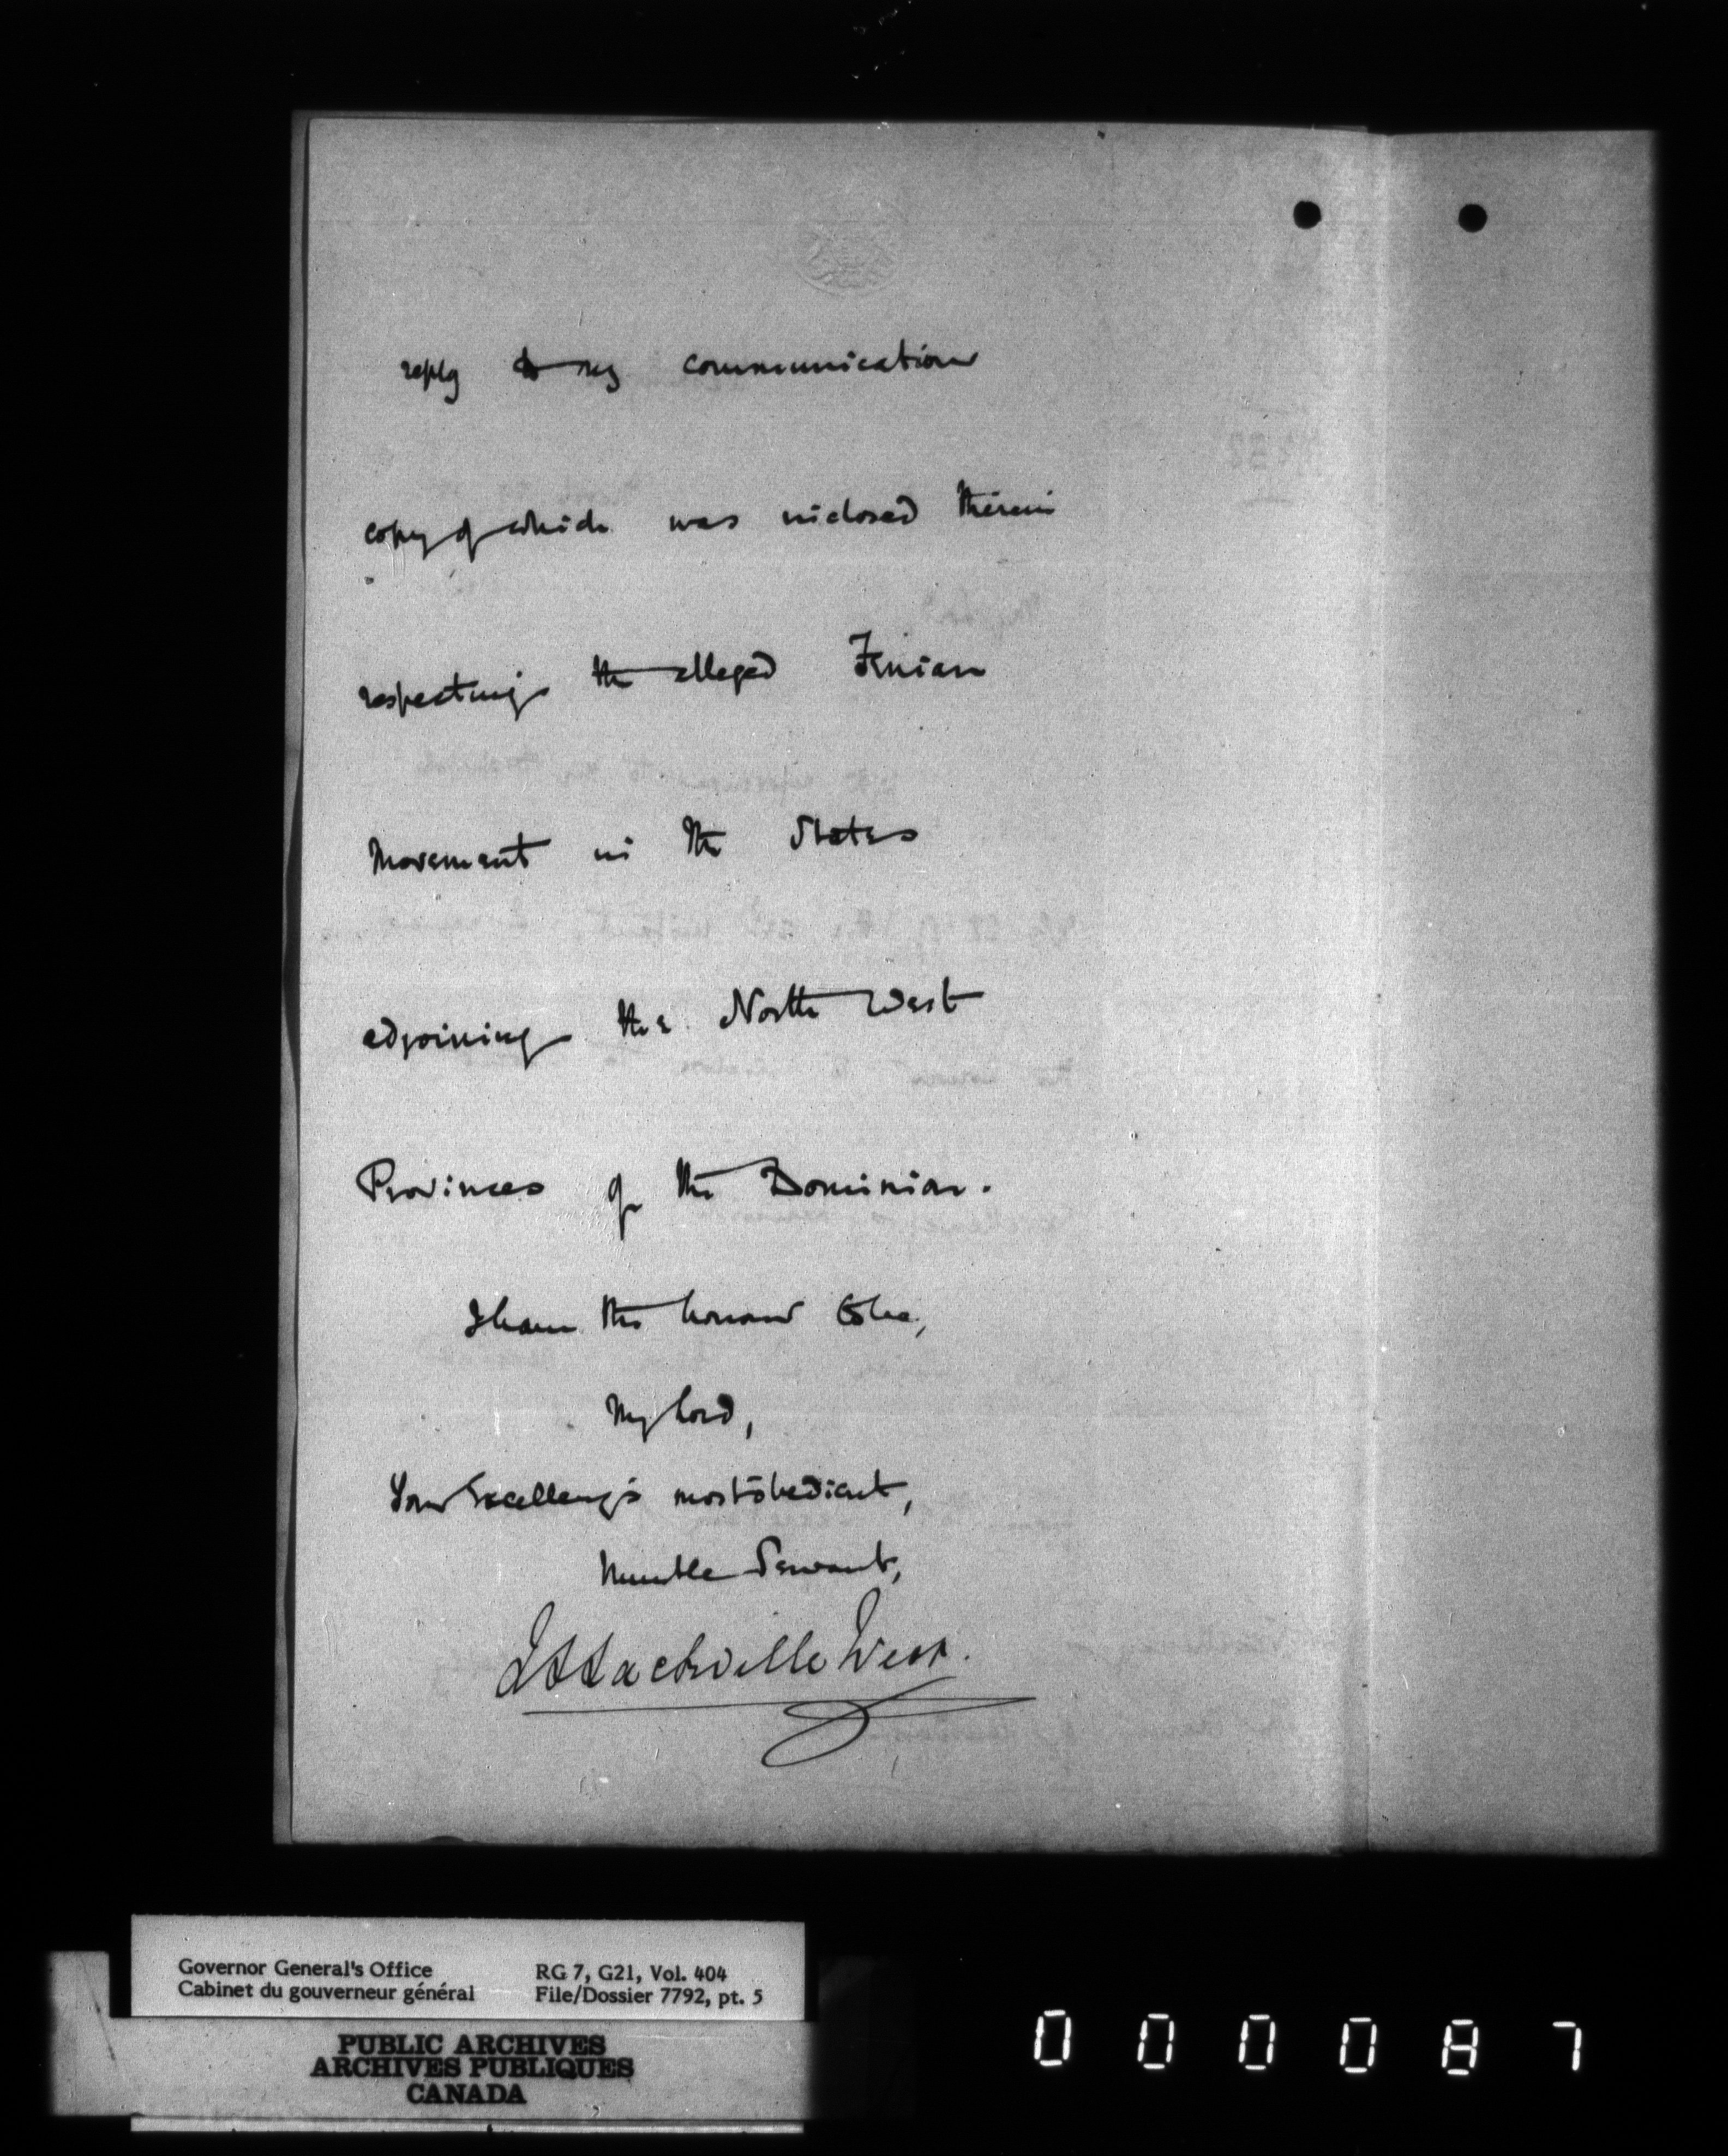 reply to my communication
copy of which was inclosed therein
respecting the alleged Fenian
Movement in the States
adjoining the North West
Provinces of the Dominion.
I have the honour to be,
My Lord,
Your Excellency's most obedient,
humble Servant,
L S Sackville West.
Governor General's Office RG 7, G21, Vol. 404
Cabinet du gouverneur général File/Dossier 7792, pt. 5
PUBLIC ARCHIVES
ARCHIVES PUBLIQUES
CANADA
000087